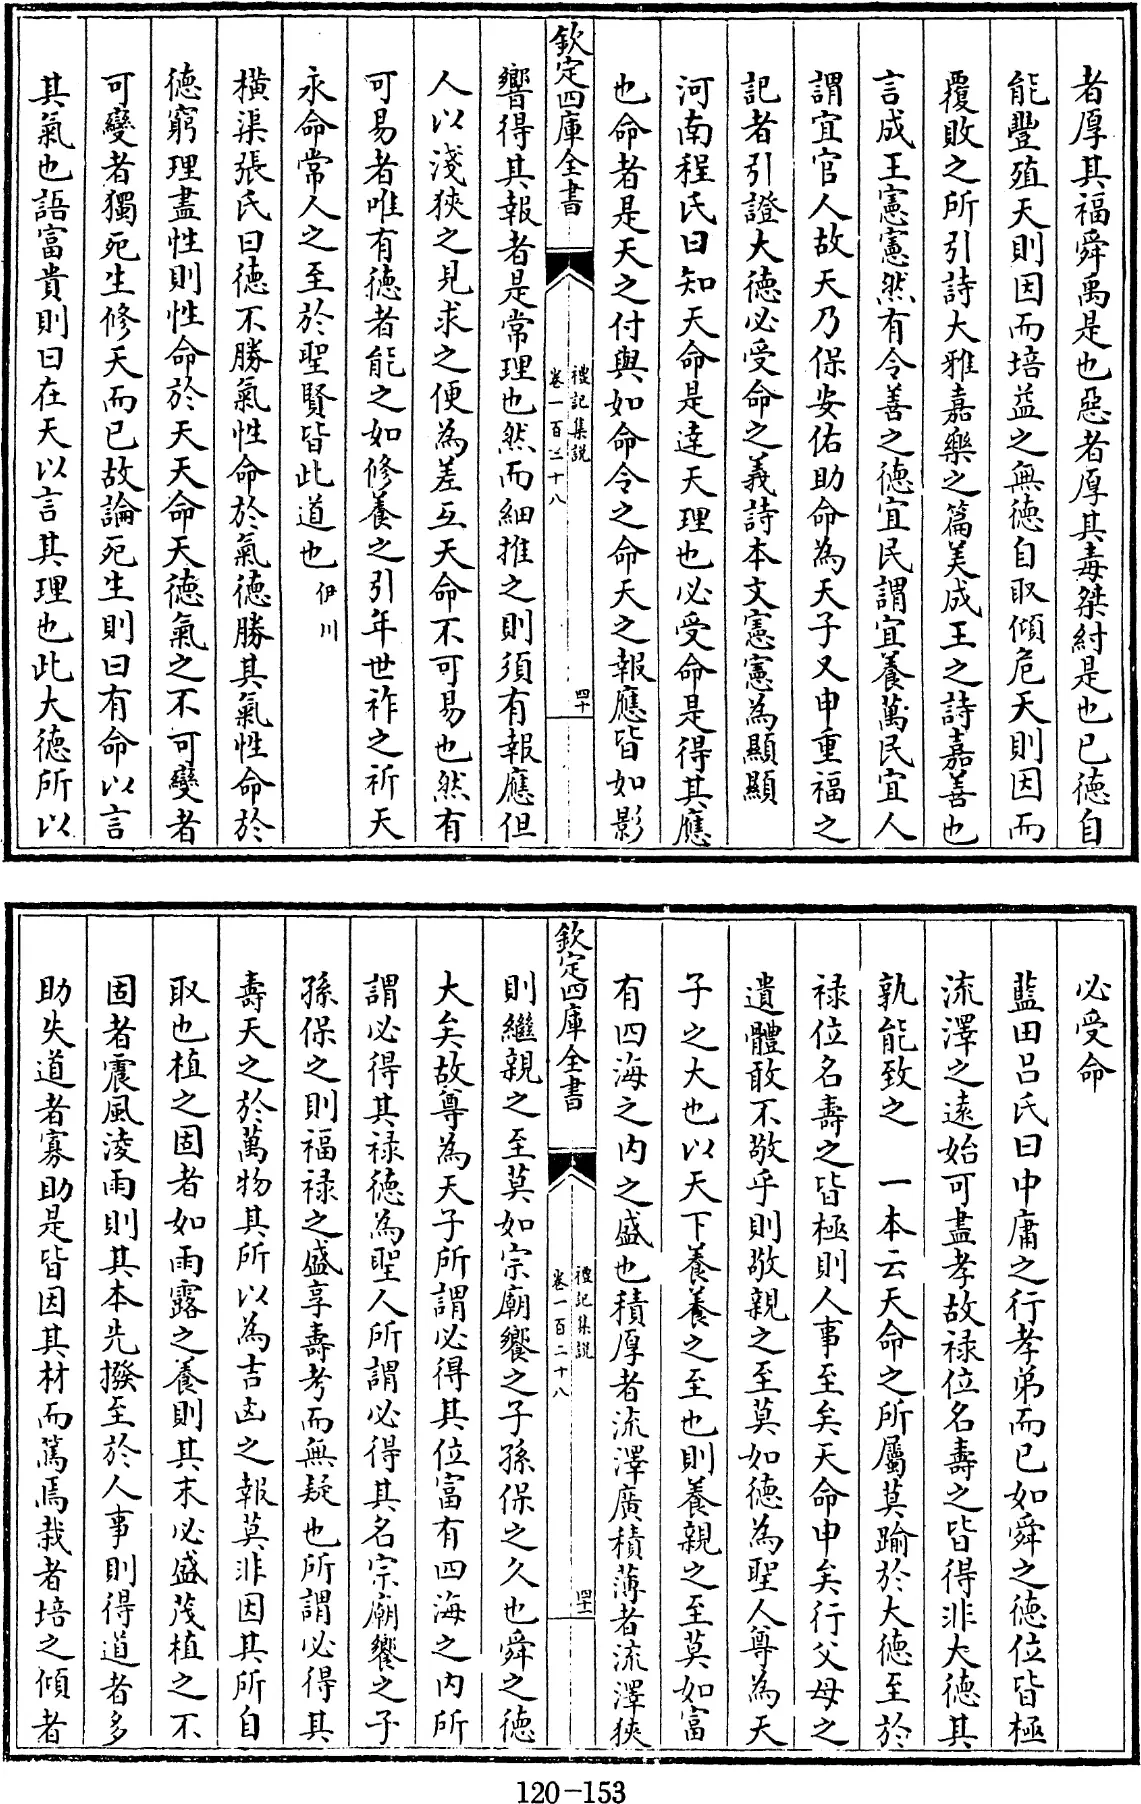 者厚其福舜禹是也惡者厚其毒桀紂是也已德自
能豐殖天則因而培益之無德自取傾危天則因而
覆敗之所引詩大雅嘉樂之篇美成王之詩嘉善也
言成王憲憲然有令善之德宜民謂宜養萬民宜人
謂宜官人故天乃保安佑助命為天子又申重福之
記者引證大德必受命之義詩本文憲憲為顯顯
河南程氏曰知天命是達天理也必受命是得其應
也命者是天之付與如命令之命天之報應皆如影
欽定四庫全書
禮記集說
卷一百二十八
四十
響得其報者是常理也然而細推之則須有報應但
人以淺狹之見求之便為差互天命不可易也然有
可易者唯有德者能之如修養之引年世祚之祈天
永命常人之至於聖賢皆此道也伊川
橫渠張氏曰德不勝氣性命於氣德勝其氣性命於
德窮理盡性則性命於天天命天德氣之不可變者
可變者獨死生修夭而已故論死生則曰有命以言
其氣也語富貴則曰在天以言其理也此大德所以
必受命
藍田呂氏曰中庸之行孝弟而已如舜之德位皆極
流澤之遠始可盡孝故祿位名壽之皆得非大德其
孰能致之 一本云天命之所屬莫踰於大德至於
祿位名壽之皆極則人事至矣天命申矣行父母之
遺體敢不敬乎則敬親之至莫如德為聖人尊為天
子之大也以天下養養之至也則養親之至莫如富
有四海之內之盛也積厚者流澤廣積薄者流澤狹
欽定四庫全書
禮記集說
卷一百二十八
四十一
則繼親之至莫如宗廟饗之子孫保之久也舜之德
大矣故尊為天子所謂必得其位富有四海之內所
謂必得其祿德為聖人所謂必得其名宗廟饗之子
孫保之則福祿之盛享壽考而無疑也所謂必得其
壽天之於萬物其所以為吉凶之報莫非因其所自
取也植之固者如雨露之養則其末必盛茂植之不
固者震風淩雨則其本先撥至於人事則得道者多
助失道者寡助是皆因其材而篤焉栽者培之傾者
120-153